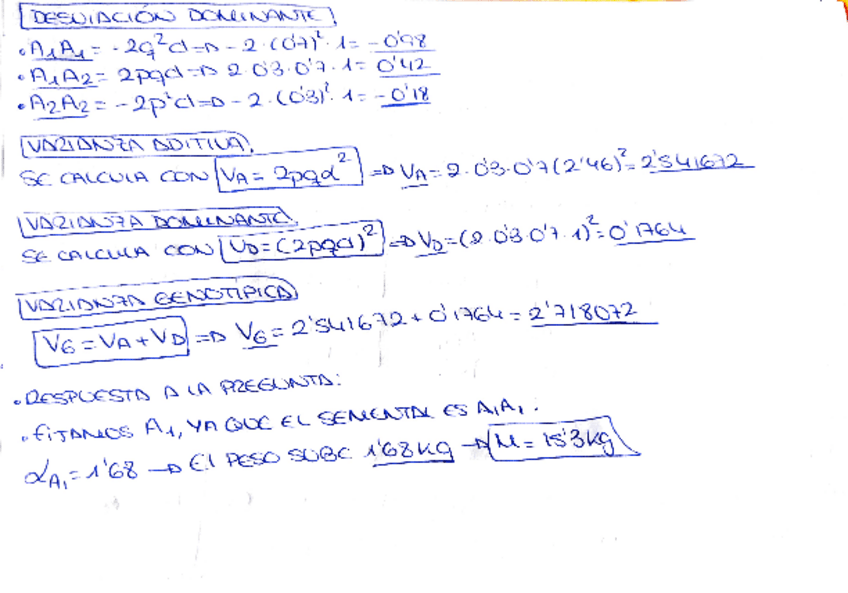 DESVIACIÓN DOMINANTE
• A₁A₁ = -2q²d => -2·(0'7)²·1 = -0'98
• A₁A₂ = 2pqd => 2·0'3·0'7·1 = 0'42
• A₂A₂ = -2p²d => -2·(0'3)²·1 = -0'18
VARIANZA ADITIVA
SE CALCULA CON VA = 2pqα² => VA = 2·0'3·0'7(2'46)² = 2'541672
VARIANZA DOMINANTE
SE CALCULA CON VD = (2pqd)² => VD = (2·0'3·0'7·1)² = 0'1764
VARIANZA GENOTÍPICA
VG = VA + VD => VG = 2'541672 + 0'1764 = 2'718072
• RESPUESTA A LA PREGUNTA:
• FIJAMOS A₁, YA QUE EL SEMENTAL ES A₁A₁.
αA₁ = 1'68 → El PESO SUBE 1'68 kg → M = 15'3 kg